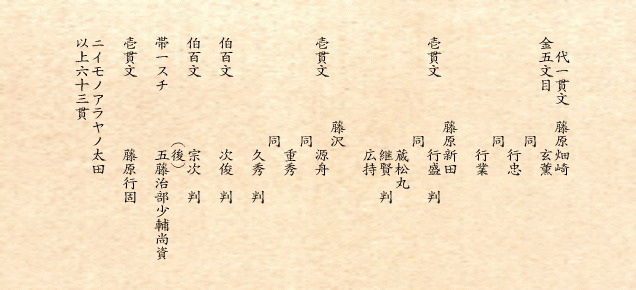 代一貫文　藤原畑崎
金五文目　　　玄薫
同
行忠
同
行業
藤原新田
壱貫文　　　行盛　判
同
蔵松丸
継賢　判
広持
藤沢
壱貫文　　　源舟
同
重秀
同
久秀　判
伯百文　　　次俊　判
伯百文　　　宗次　判
（後）
帯一スチ　　五藤治部少輔尚資
壱貫文　　　藤原行固
ニイモノアラヤノ太田
以上六十三貫